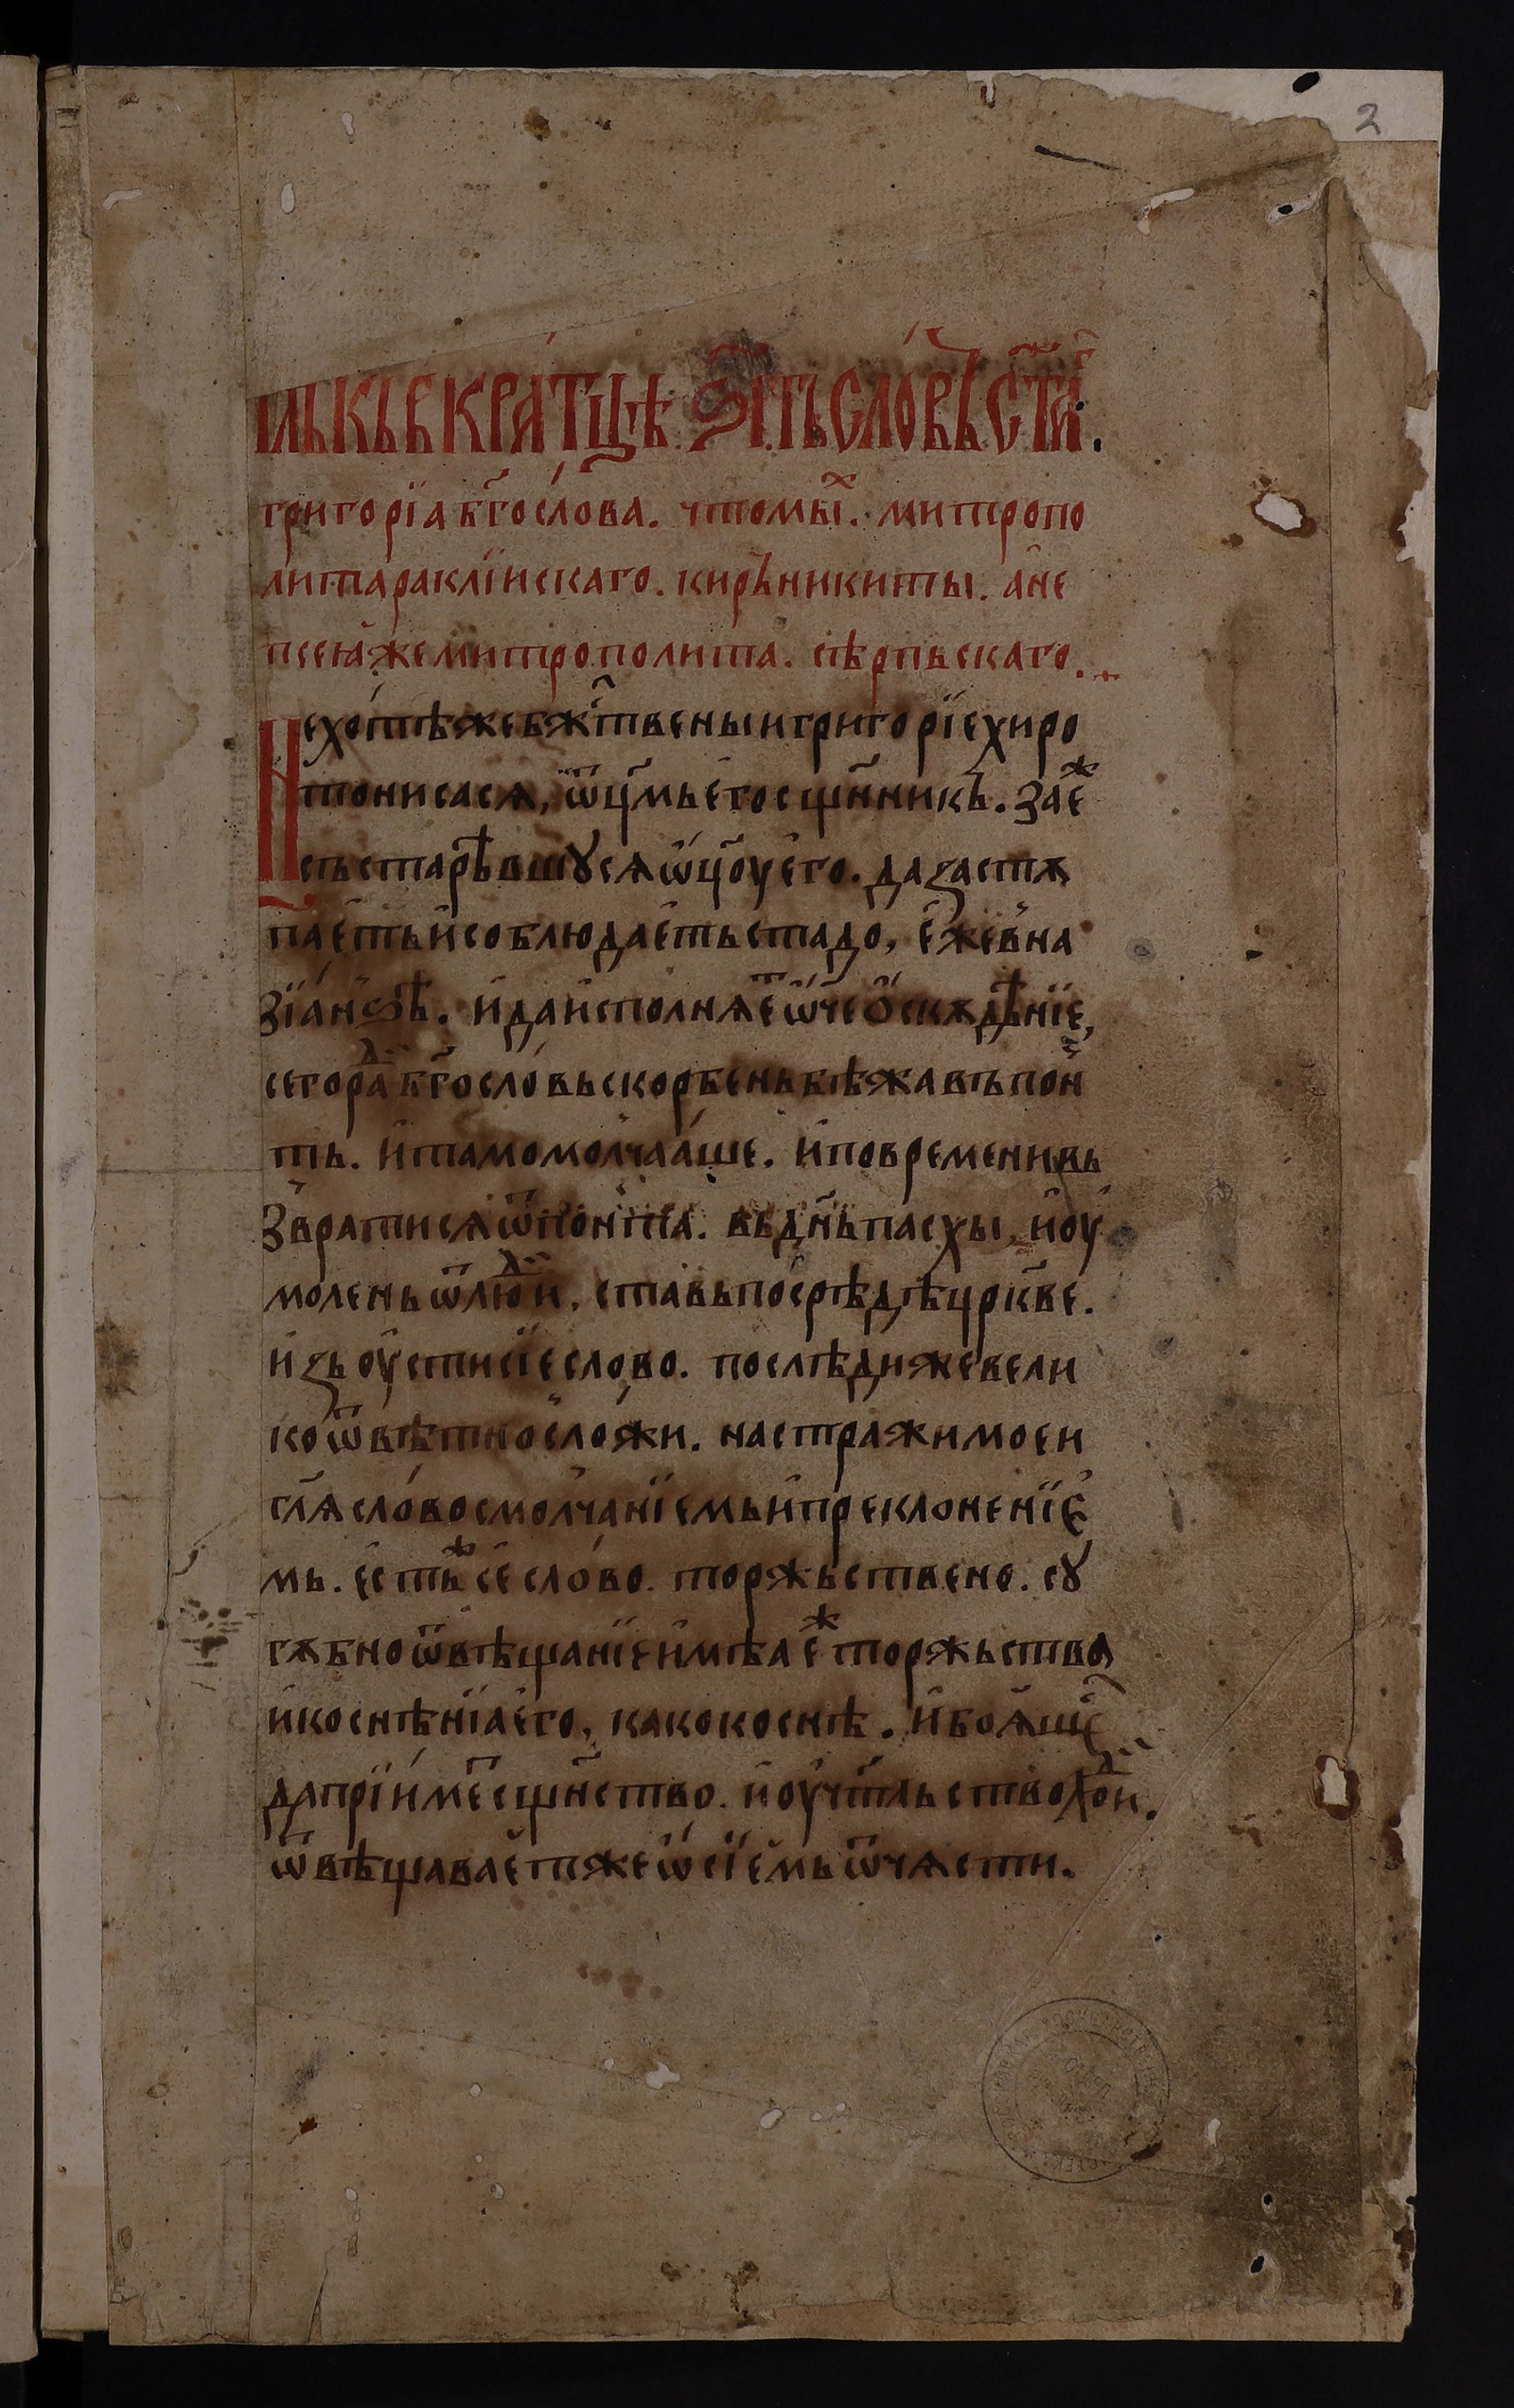 2
тлъкь вкра́тцѣ ѕ҃і тъ сло́вѣ ст҃г.
григорїа бг҃осло́ва. чтомы́х. митропо
лита раклїискаго. кирь никиты. а҆не
псеꙗ҆же митрополита. сѣрпьскаго.
Не хо́тѣ же бж҃твеныи григорїе хиро
тонисасѧ, ѿ ц҃мь є҆го сщ҃нникъ. занѥ҆ж
състарѣвшꙋсѧ ѡ҆ц҃оу є҆го. да заст​ѫ
пае҆ть и҆ соблюдае҆ть стадо, є҆же в на
зїа́нѕѣ. и҆ да и҆сполнѧе҆т ѡ҆че ѡ҆скѫдѣнїе,
сего рад бг҃осло́вь скорбень бѣжа въ пон
тъ. и҆ тамо молчаа́ше. и҆ по времени въ
звратисѧ ѿ понта. вь дн҃ь пасхы, и҆ оу
молень ѿ люди, ставь посрѣдѣ цр҃кве.
и҆зьоу́сти сїе слово. послѣди же вели
ко ѿвѣтно сложи. на стражи моеи
гл҃ѧ сло́во с молчанїемь и҆ преклоненїе
мь. є҆сть ж се сло́во торжьствено. сꙋ
гѫбно ѿвѣщанїе и҆мѣа є҆ж торжьства
и҆ коснѣнїа є҆го, како коснѣ. и҆ боѧщс
да прїиме҆т сщ҃нство. и҆ оу҆чт҃льство люди.
ѿвѣщавае҆т же ѡ҆ сїе҆мь ѿчѧсти.